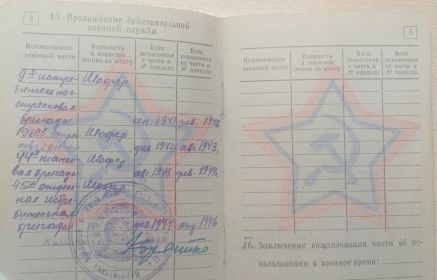 4
15. Прохождение действительной
военной службы
Наименование воинской части
Должность и воинское звание по штату
Дата зачисления в часть и № приказа
Дата исключения из части и № приказа
9я истре- Шофер
бительная
стрелковая
бригада сен. 1941 дек. 1942
Шофер
бригада дек. 1942 авг. 1943
44я танко- Шофер
вая бригада авг. 1943 дек. 1944
45я отдель- Шофер
ная истре-
бительная
бригада дек. 1944 1946
5
Наименование воинской части
Должность и воинское звание по штату
Дата зачисления в часть и № приказа
Дата исключения из части и № приказа
16. Заключение командования части об ис-
пользовании в военное время: